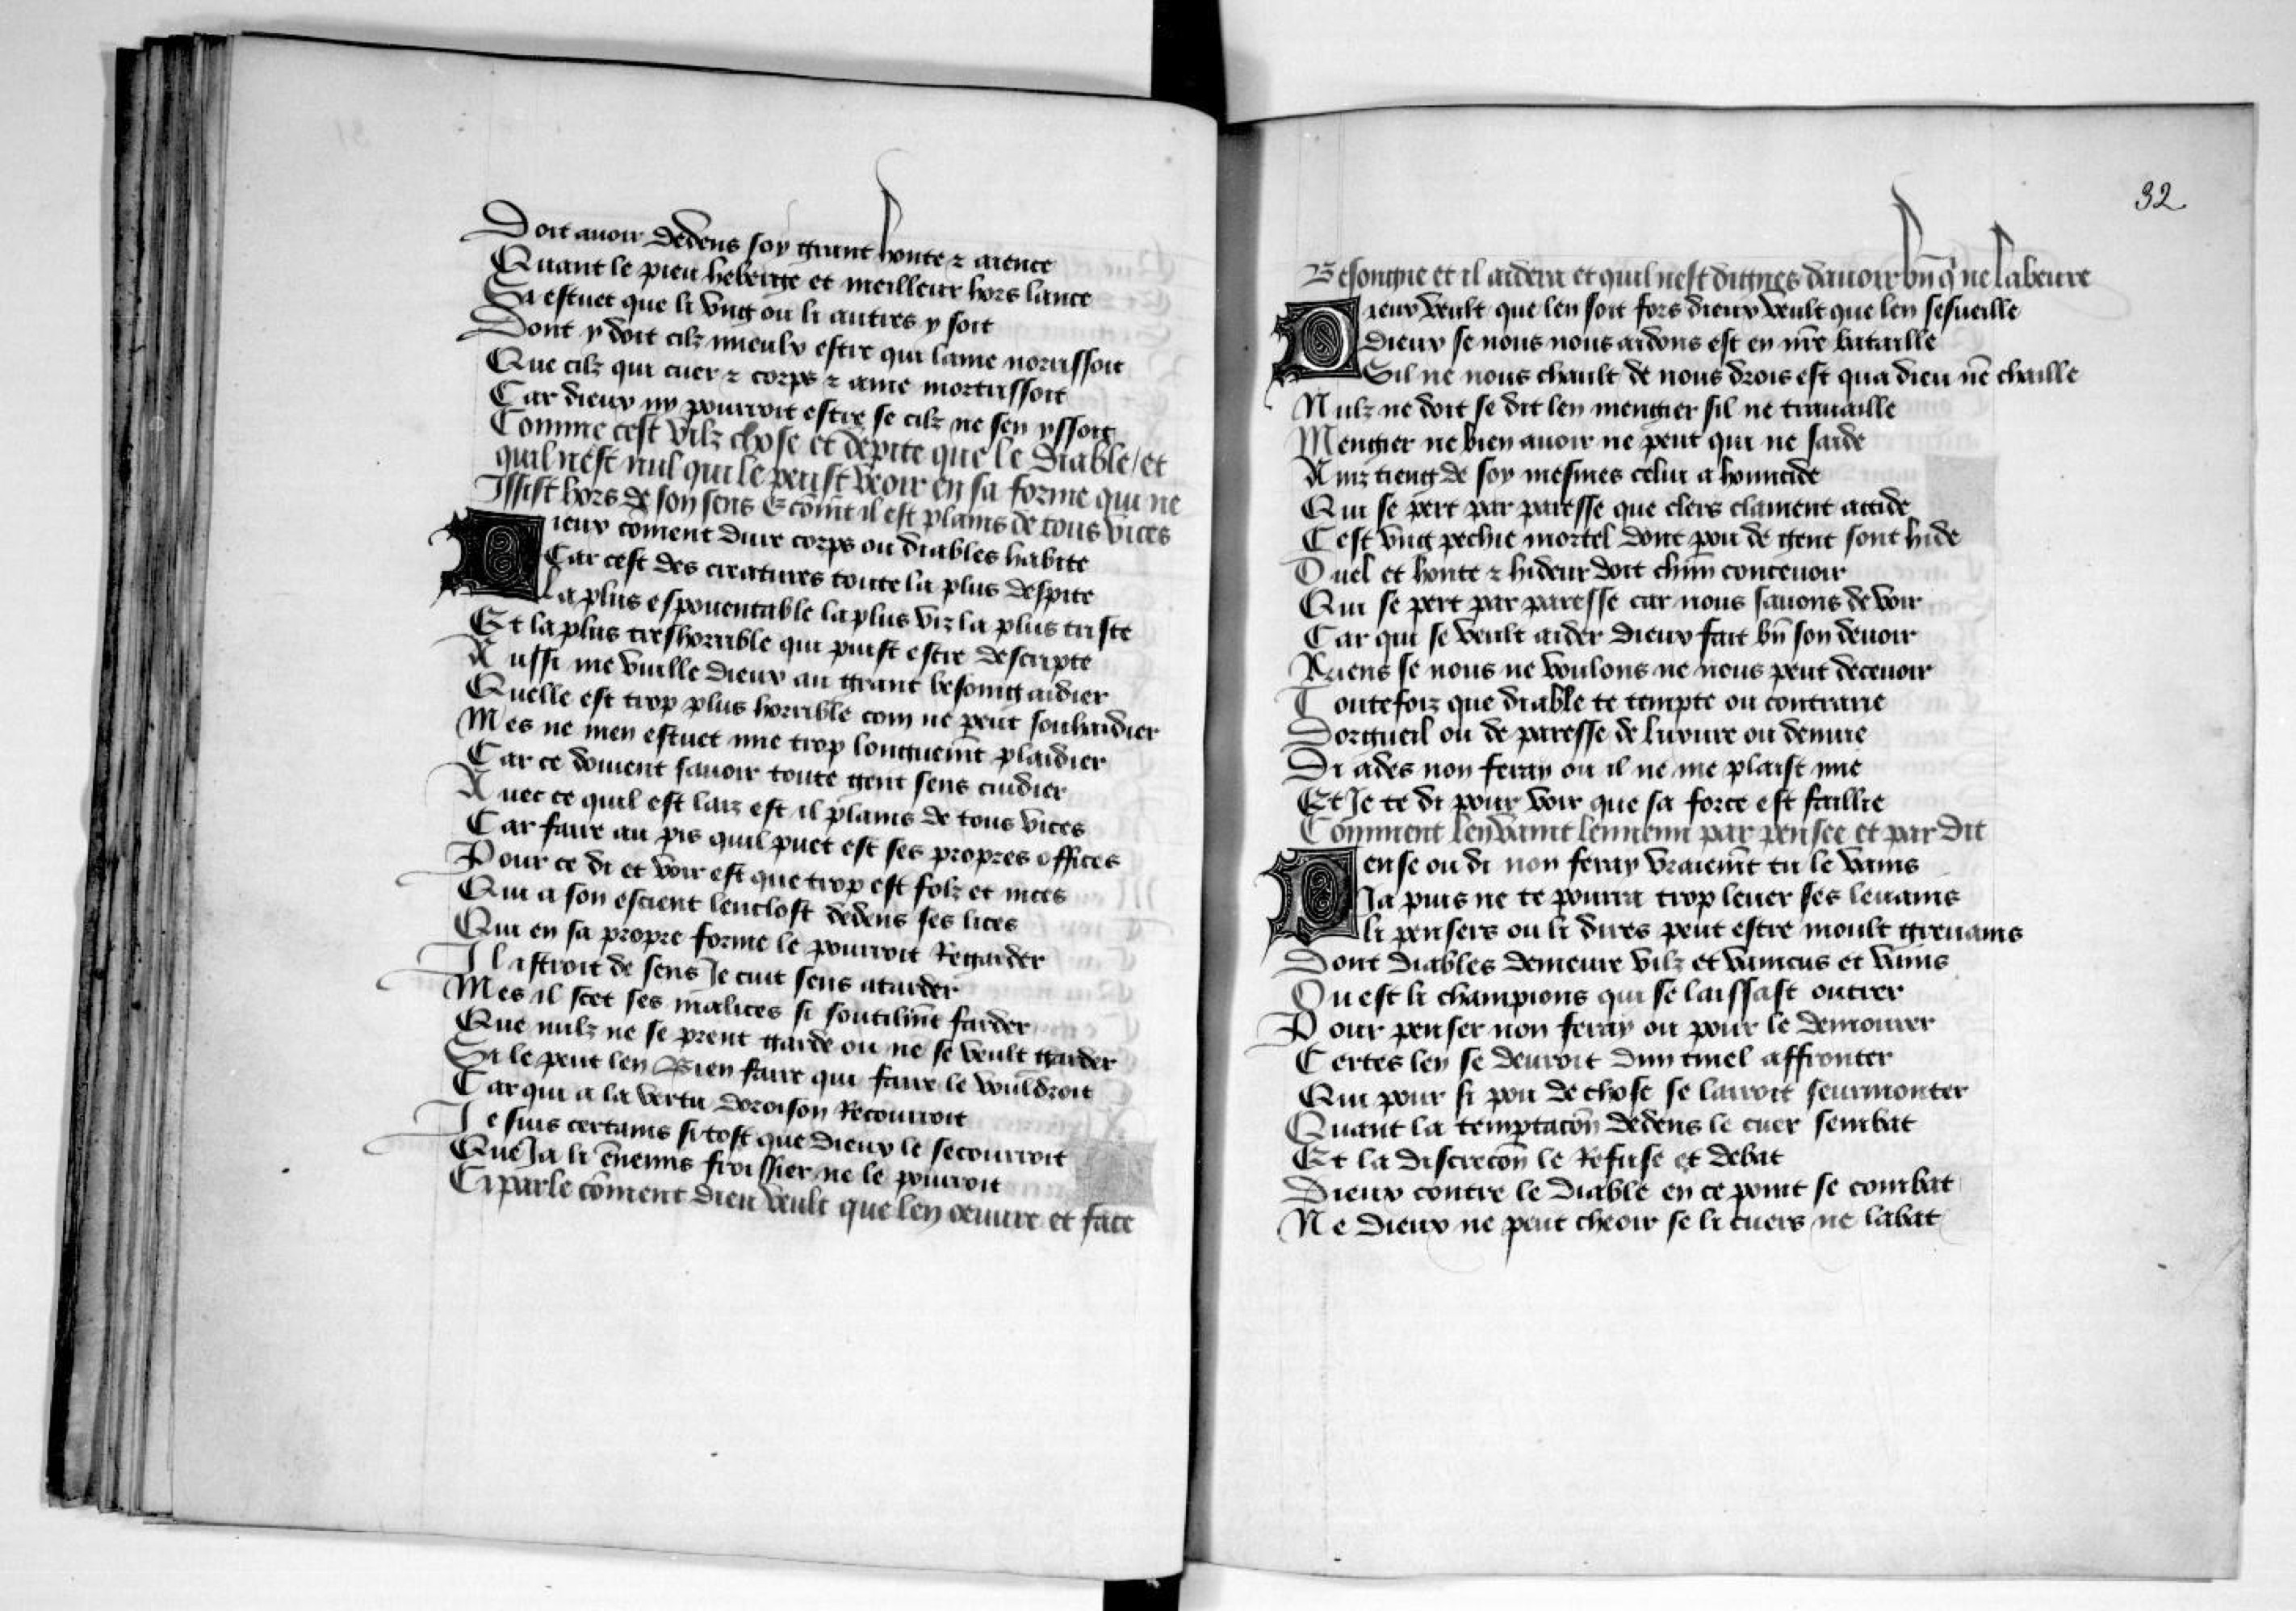 Doit auoir dedens soy grant honte ⁊ aience
Quant le pieu heberge et meilleur hors lance
Sa estuet que li vng ou li autres y soit
Dont y doit cilz mieulx estre qui lame norrissoit
Que cilz qui cuer ⁊ corps ⁊ ame mortrissoit
Car dieux ny pourroit estre se cilz ne sen yssoit
Comme cest vilz chose et depite que le diable / et
quil nest nul qui le peust veoir en sa forme qui ne
Issist hors de son sens Et cōmt il est plains de tous vices
Dieux cōment dure corps ou diables habite
Car cest des creatures toute la plus despite
La plus espouentable la plus viz la plus triste
Et la plus treshorrible qui puist estre descripte
Aussi me vuille dieux au grant besoing aidier
Quelle est trop plus horrible com ne peut souhaidier
Mes ne men estuet mie trop longuemt̄ plaidier
Car ce doiuent sauoir toute gent sens cuidier
Auec ce quil est laiz est il plains de tous vices
Car faire au pis quil puet est ses propres offices
Pour ce di et voir est que trop est folz et nices
Qui a son escient lenclost dedens ses lices
Qui en sa propre forme le pourroit Regarder
Il istroit de sens Je cuit sens atarder
Mes il scet ses malices si soutilmt̄ farder
Que nulz ne se prent garde ou ne se veult garder
Si le peut len Bien faire qui faire le vouldroit
Car qui a la vertu doroison Recourroit
Je suis certains si tost que dieux le secourroit
Que Ja li ēnemis froissier ne le pourroit
Ci parle cōment dieu veult que len oeuure et face
32
Besongne et il aidera et quil nest dignes dauoir bn̄ q̄ ne labeure
Dieux veult que len soit fors dieux veult que len sesueille
Dieux se nous nous aidons est en nr̄e bataille
Sil ne nous chault de nous drois est qua dieu nē chaille
Nulz ne doit se dit len mengier sil ne trauaille
Mengier ne bien auoir ne peut qui ne saide
Ainz tieng de soy mesmes celui a homicide
Qui se pert par paresse que clers clament accide
Cest vng pechie mortel dont pou de gent sont hide
Duel et honte ⁊ hideur doit chūn conceuoir
Qui se pert par paresse car nous sauons de voir
Car qui se veult aider dieux fait bn̄ son deuoir
Riens se nous ne voulons ne nous peut deceuoir
Toutefoiz que diable te tempte ou contrarie
Dorgueil ou de paresse de luxure ou denuie
Di ades non feray ou il ne me plaist mie
Et Je te di pour voir que sa force est faillie
Comment len vaint lennemi par pensee et par dit
Pense ou di non feray vraiemt̄ tu le vains
Ja puis ne te pourra trop leuer ses leuains
li pensers ou li dires peut estre moult greuains
Dont diables demeure vilz et vaincus et vains
Ou est li champions qui se laissast oultrer
Pour penser non feray ou pour le demonrer
Certes len se deuroit dun tinel affronter
Qui pour si pou de chose se lairoit seurmonter
Quant la temptacōn dedens le cuer sembat
Et la discrecōn le Refuse et debat
Dieux contre le diable en ce point se combat
Ne dieux ne peut cheoir se li cuers ne labat